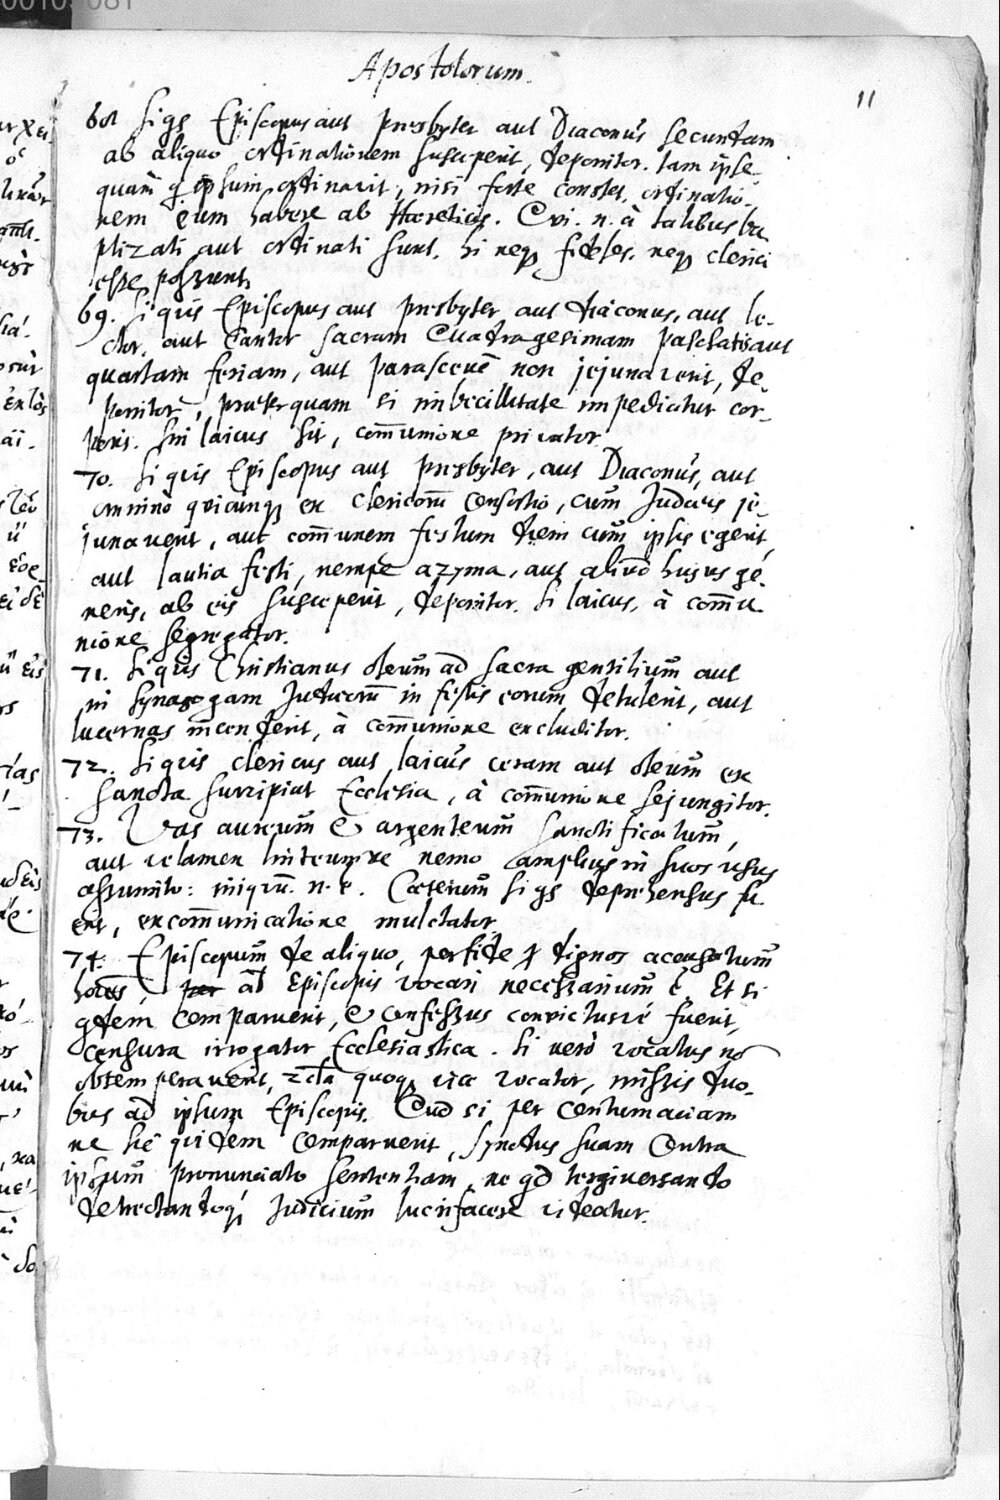 Apostolorum.
11
68 Si qs Episcopus aut Presbyter aut Diaconus secundam
ab aliquo ordinationem susceperit, deponitor. tam ipse
quam q ipsum ordinavit, nisi forte constet, ordinatio-
nem eum habere ab Haereticis. Qvi. n. à talibus ba
ptizati aut ordinati sunt. hi neq fideles. neq clerici
esse possunt.
69. Si quis Episcopus aut Presbyter, aut diaconus, aut le-
ctor, aut Cantor sacram Quadragesimam Paschatis aut
quartam feriam, aut parascevē non jejunaverit, de-
ponitor, praeterquam si imbecillitate impediatur cor-
poris. Sin laicus sit, com̄unione privator.
70. Si quis Episcopus aut Presbyter, aut Diaconus, aut
omnino quicunq ex clericorū consortio, cum Judaeis je-
junaverit, aut com̄unem festum diem cum ipsis egerit,
aut lautia festi, nempe azyma, aut aliud hujus ge-
neris, ab eis susceperit, deponitor. Si laicus, à com̄u
nione segregator.
71. Si quis Christianus oleum ad sacra gentilium aut
in synagogam Judaeorū in festis eorum detulerit, aut
lucernas incenderit, à com̄unione excluditor.
72. Si quis clericus aut laicus ceram aut oleum ex
sancta surripiat Ecclesia, à com̄unione sejungitor.
73. Vas aureum & argenteum sanctificatum,
aut velamen linteumve nemo amplius in suos usus
assumito: iniquū. n. ē. Caeterum si qs deprehensus fu
erit, excom̄unicatione mulctator.
74. Episcopum de aliquo, perfide p dignos accusatum
hōies, ab Episcopis vocari necessarium ē. Et si
qdem comparuerit, & confessus convictusve fuerit,
censura irrogator Ecclesiastica. Si vero vocatus nō
obtemperaverit, 2da quoq vice vocator, missis duo-
bus ad ipsum Episcopis. Quod si per contumaciam
ne sic quidem comparuerit, synodus suam contra
ipsum pronunciato sententiam, ne qd tergiversando
detrectandoq, Judicium lucrifacere videatur.